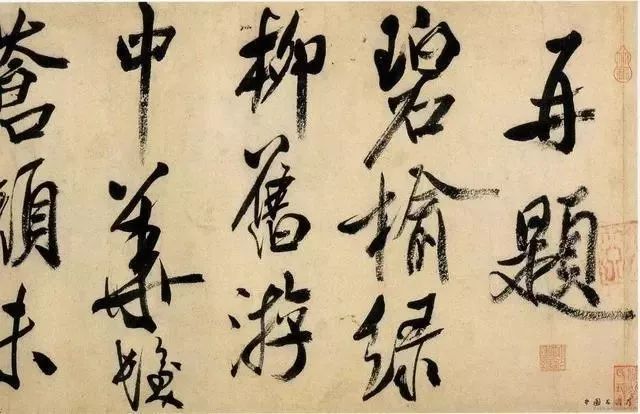 再題
碧榆綠
柳舊游
中華髮
蒼顏未